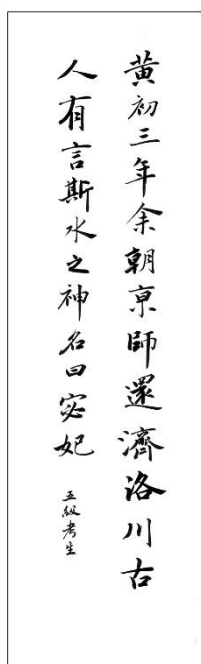 黄初三年余朝京師還濟洛川古
人有言斯水之神名曰宓妃
五級考生